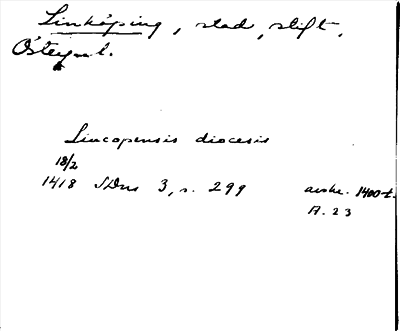 Linköping, stad, stift,
Östergötl.
Lincopensis diocesis
18/2
1418 SDns 3, s. 299 avskr. 1400-t.
A. 23